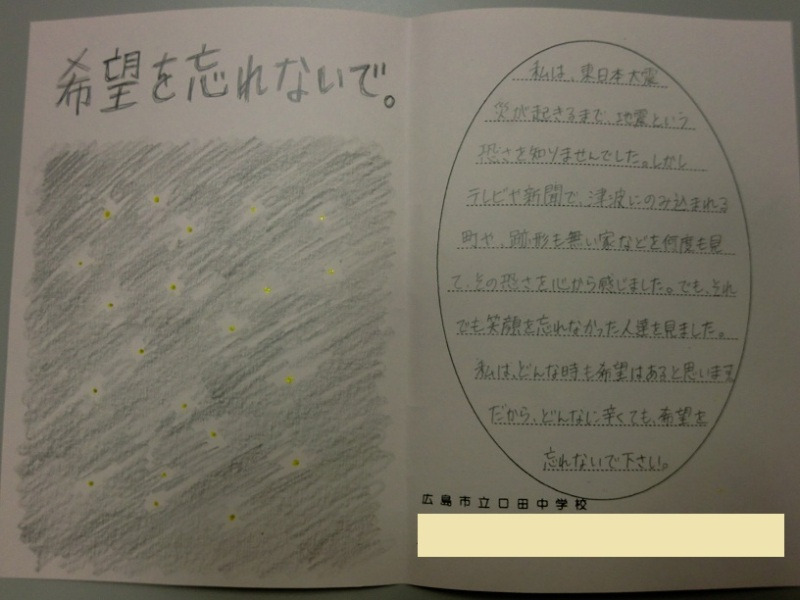 希望を忘れないで。
私は、東日本大震
災が起きるまで、地震という
恐さを知りませんでした。しかし
テレビや新聞で、津波にのみ込まれる
町や、跡形も無い家などを何度も見
て、その恐さを心から感じました。でも、それ
でも笑顔を忘れなかった人達を見ました。
私は、どんな時も希望はあると思います
だから、どんなに辛くても、希望を
忘れないで下さい。
広島市立口田中学校